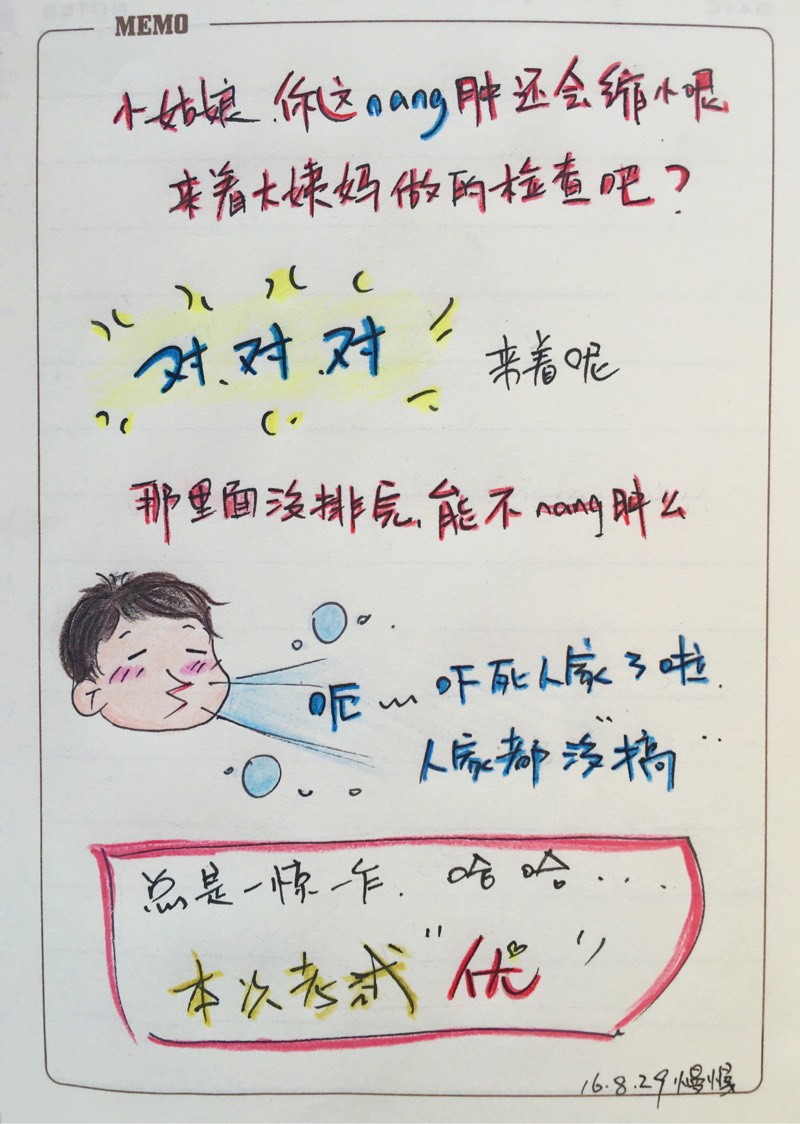 MEMO
小姑娘.你这nang肿还会缩小呢
来着大姨妈做的检查吧?
对.对.对 来着呢
那里面没排完,能不nang肿么
呃~~ 吓死人家了啦.
人家都没"搞"
总是一惊一乍. 哈哈....
本次考试"优"
16.8.29 慢慢